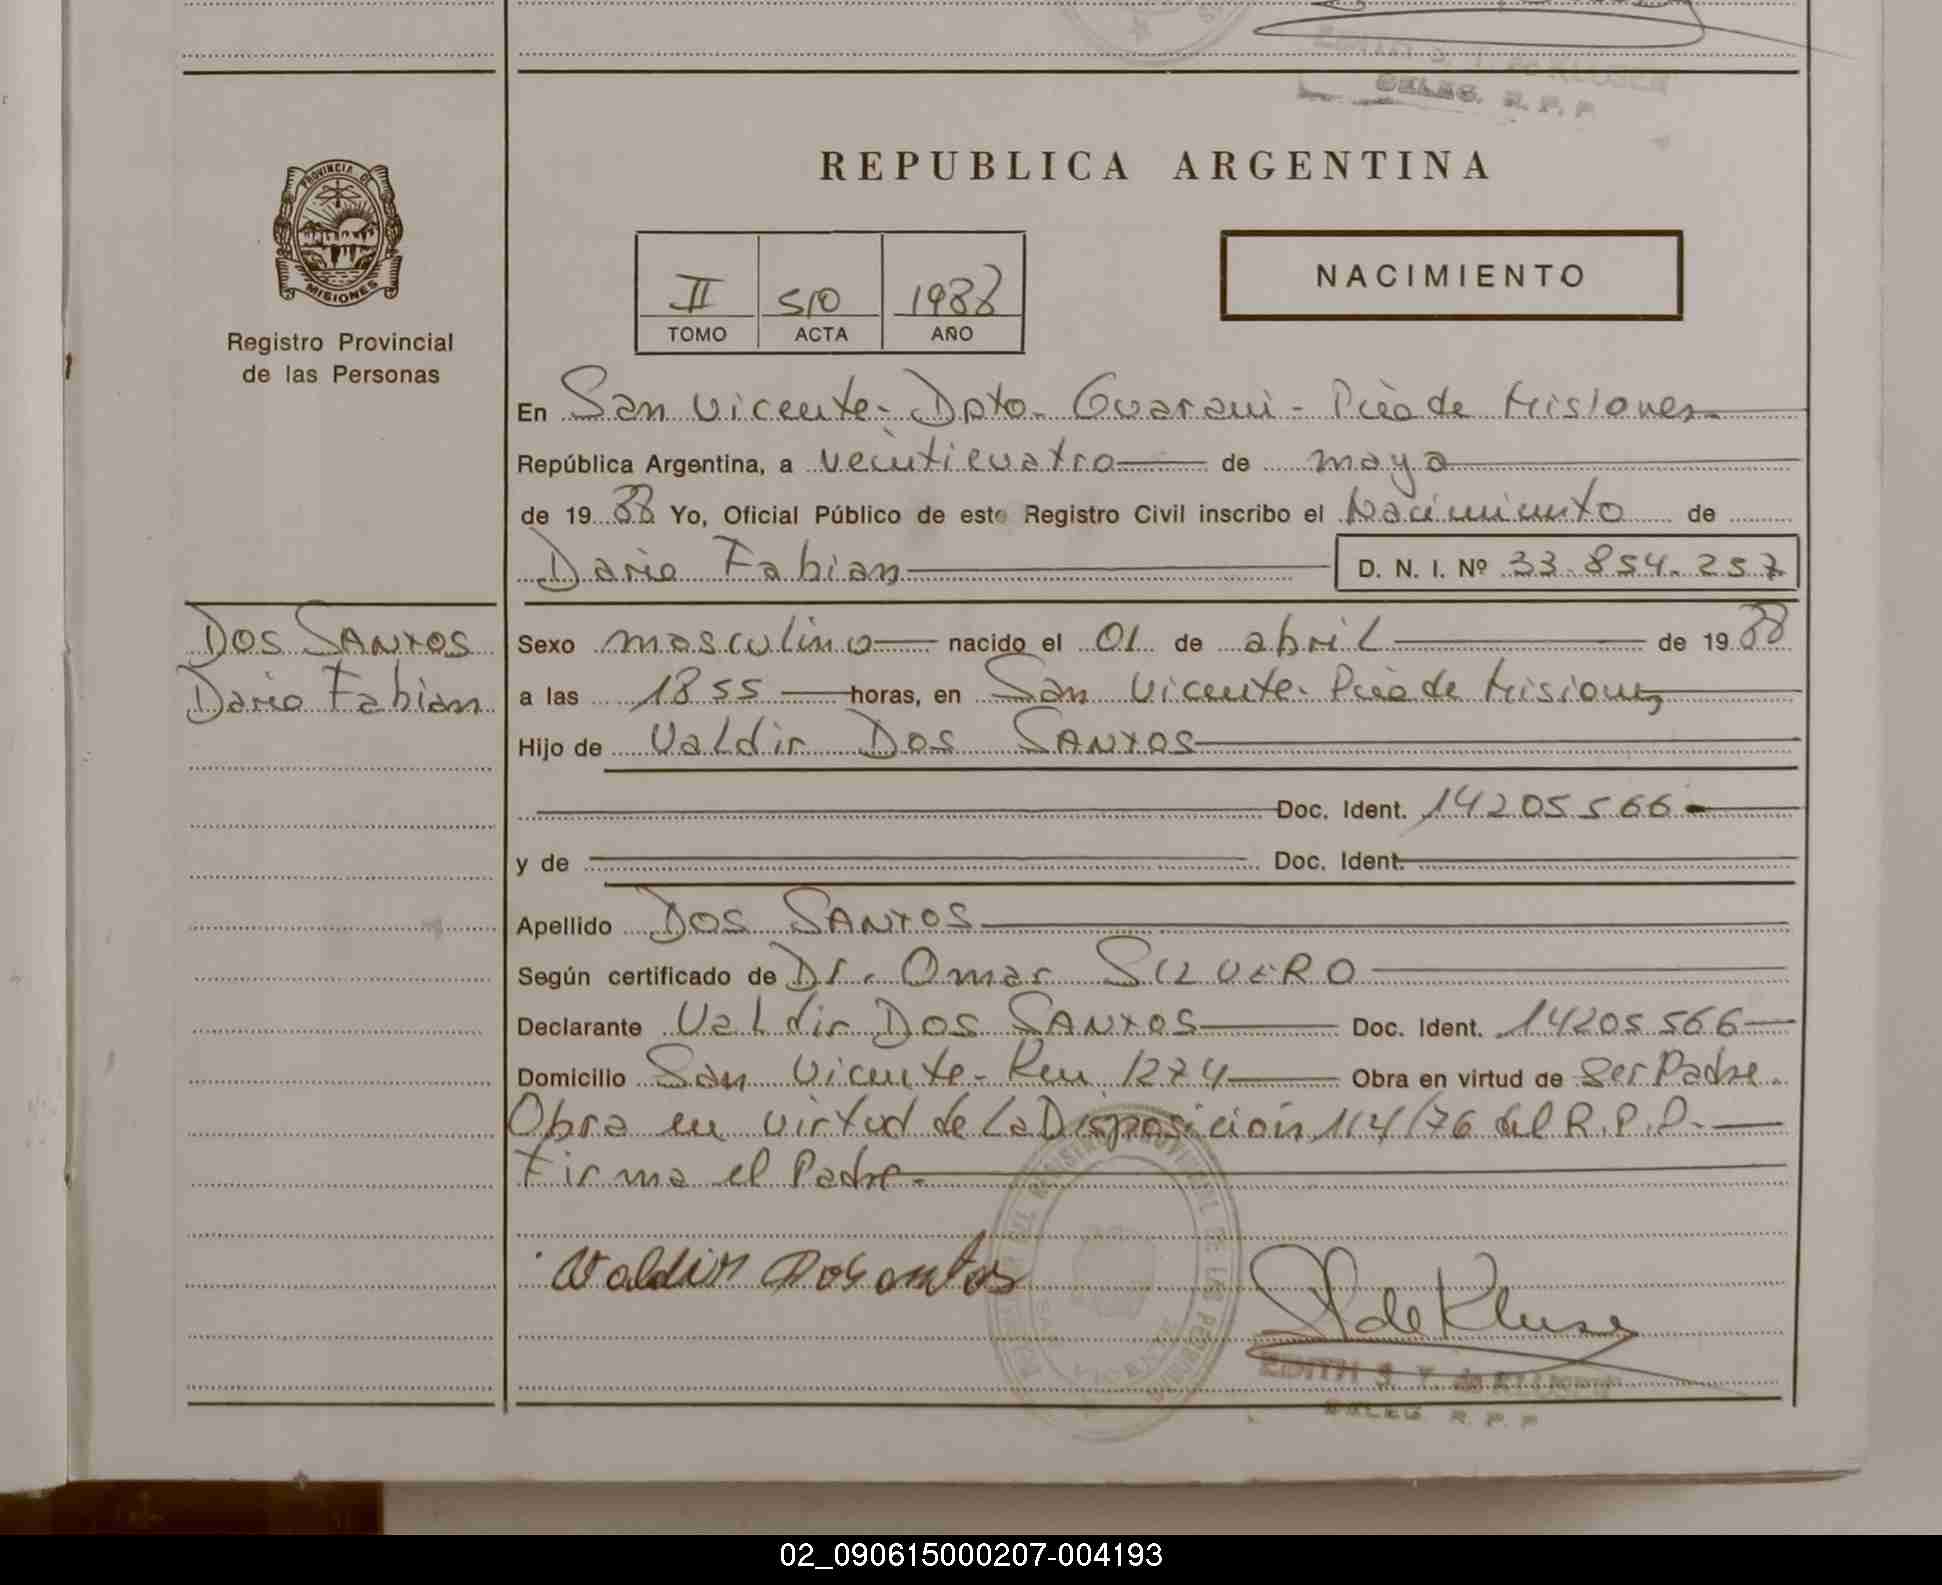 EDITH S. T. de KLUSEN
DELEG. R. P. P.
REPUBLICA ARGENTINA
PROVINCIA DE
MISIONES
Registro Provincial
de las Personas
II 510 1988
TOMO ACTA AÑO
NACIMIENTO
En San Vicente - Dpto. Guarani - Pcia de Misiones
República Argentina, a veinticuatro de mayo
de 19 88 Yo, Oficial Público de este Registro Civil inscribo el Nacimiento de
Dario Fabian D. N. I. Nº 33.854.257
DOS SANTOS
Dario Fabian
Sexo masculino nacido el 01 de abril de 19 88
a las 18 55 horas, en San Vicente - Pcia de Misiones
Hijo de Valdir DOS SANTOS
Doc. Ident. 14205566
y de Doc. Ident.
Apellido DOS SANTOS
Según certificado de Dr. Omar SILVERO
Declarante Valdir DOS SANTOS Doc. Ident. 14205566
Domicilio San Vicente - Km 1274 Obra en virtud de Ser Padre.
Obra en virtud de La Disposición 114/76 del R.P.P.
Firma el Padre.
Valdir Dosantos
de Klusen
EDITH S. T. de KLUSEN
DELEG. R. P. P.
02_090615000207-004193